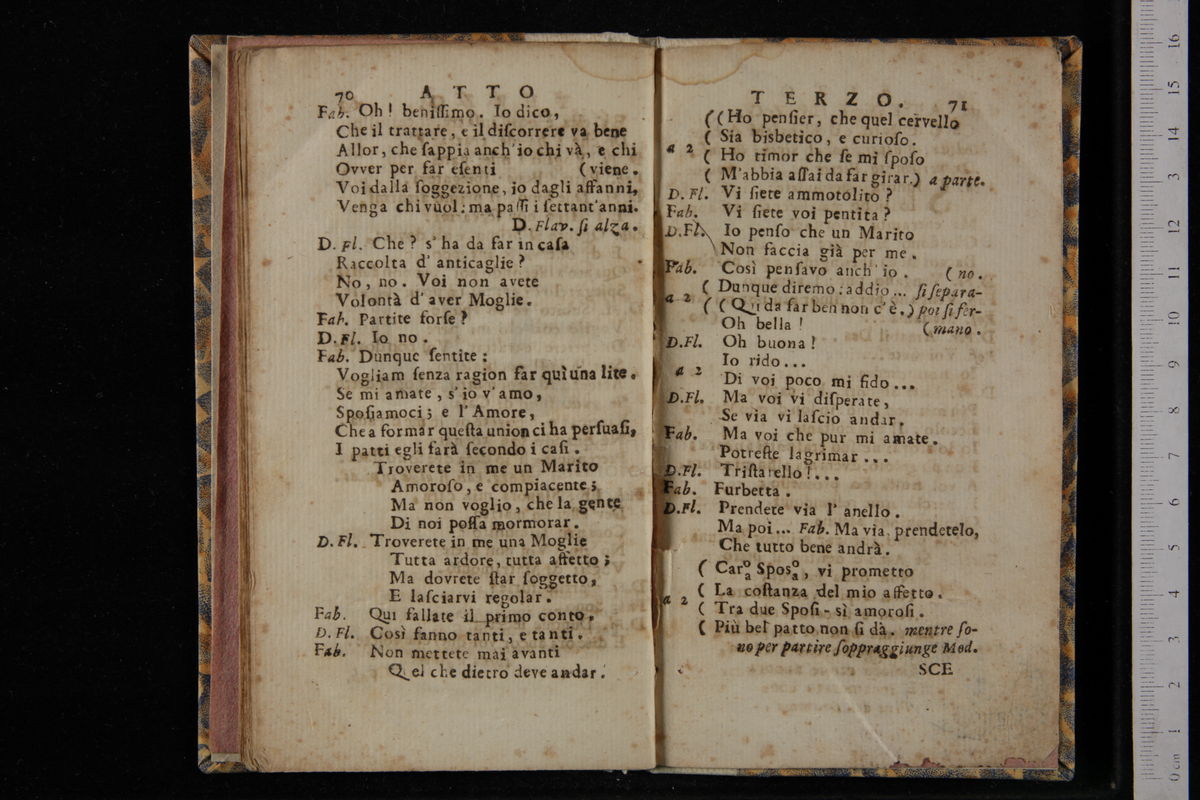 70 ATTO
Fab. Oh! beniſſimo. Io dico,
Che il trattare, e il diſcorrere va bene
Allor, che ſappia anch'io chi và, e chi
Ovver per far eſenti (viene.
Voi dalla ſoggezione, io dagli affanni,
Venga chi vuol: ma paſſi i ſettant'anni.
D. Flav. ſi alza.
D. Fl. Che? s'ha da far in caſa
Raccolta d'anticaglie?
No, no. Voi non avete
Volontà d'aver Moglie.
Fab. Partite forſe?
D. Fl. Io no.
Fab. Dunque ſentite:
Vogliam ſenza ragion far quì una lite.
Se mi amate, s'io v'amo,
Spoſiamoci; e l'Amore,
Che a formar queſta union ci ha perſuaſi,
I patti egli farà ſecondo i caſi.
Troverete in me un Marito
Amoroſo, e compiacente;
Ma non voglio, che la gente
Di noi poſſa mormorar.
D. Fl. Troverete in me una Moglie
Tutta ardore, tutta affetto;
Ma dovrete ſtar ſoggetto,
E laſciarvi regolar.
Fab. Qui fallate il primo conto,
D. Fl. Così fanno tanti, e tanti.
Fab. Non mettete mai avanti
Quel che dietro deve andar.
TERZO. 71
( (Ho penſier, che quel cervello
( Sia bisbetico, e curioſo.
a 2 ( Ho timor che ſe mi ſpoſo
( M'abbia aſſai da far girar.) a parte.
D. Fl. Vi ſiete ammotolito?
Fab. Vi ſiete voi pentita?
D. Fl. Io penſo che un Marito
Non faccia già per me.
Fab. Così penſavo anch'io. (no.
( Dunque diremo: addio... ſi ſepara-
a 2 ( (Quì da far ben non c'è.) poi ſi fer-
Oh bella! (mano.
D. Fl. Oh buona!
Io rido...
a 2 Di voi poco mi fido...
D. Fl. Ma voi vi diſperate,
Se via vi laſcio andar.
Fab. Ma voi che pur mi amate.
Potreſte lagrimar...
D. Fl. Triſtarello!...
Fab. Furbetta.
D. Fl. Prendete via l'anello.
Ma poi... Fab. Ma via prendetelo,
Che tutto bene andrà.
( Car<sup>o</sup><sub>a</sub> Spos<sup>o</sup><sub>a</sub>, vi prometto
( La coſtanza del mio affetto.
a 2 ( Tra due Spoſi - sì amoroſi.
( Più bel patto non ſi dà. mentre ſo-
no per partire ſoppraggiunge Mod.
SCE